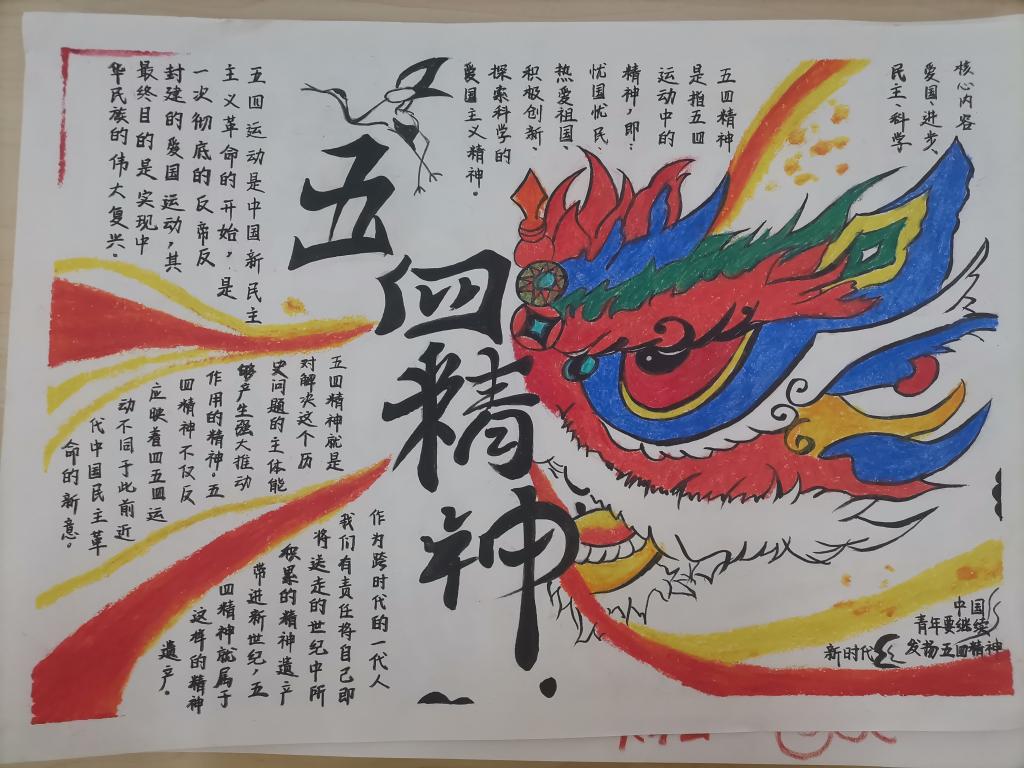 核心内容
爱国、进步、
民主、科学
五四精神
是指五四
运动中的
精神,即:
忧国忧民、
热爱祖国、
积极创新、
探索科学的
爱国主义精神。
五四精神
五四运动是中国新民主
主义革命的开始,是
一次彻底的反帝反
封建的爱国运动,其
最终目的是实现中
华民族的伟大复兴。
五四精神就是
对解决这个历
史问题的主体能
够产生强大推动
作用的精神。五
四精神不仅反
应映着四五四运
动不同于此前近
代中国民主革
命的新意。
作为跨时代的一代人
我们有责任将自己即
将送走的世纪中所
积累的精神遗产
带进新世纪,五
四精神就属于
这样的精神
遗产。
新时代
中国
青年要继续
发扬五四精神